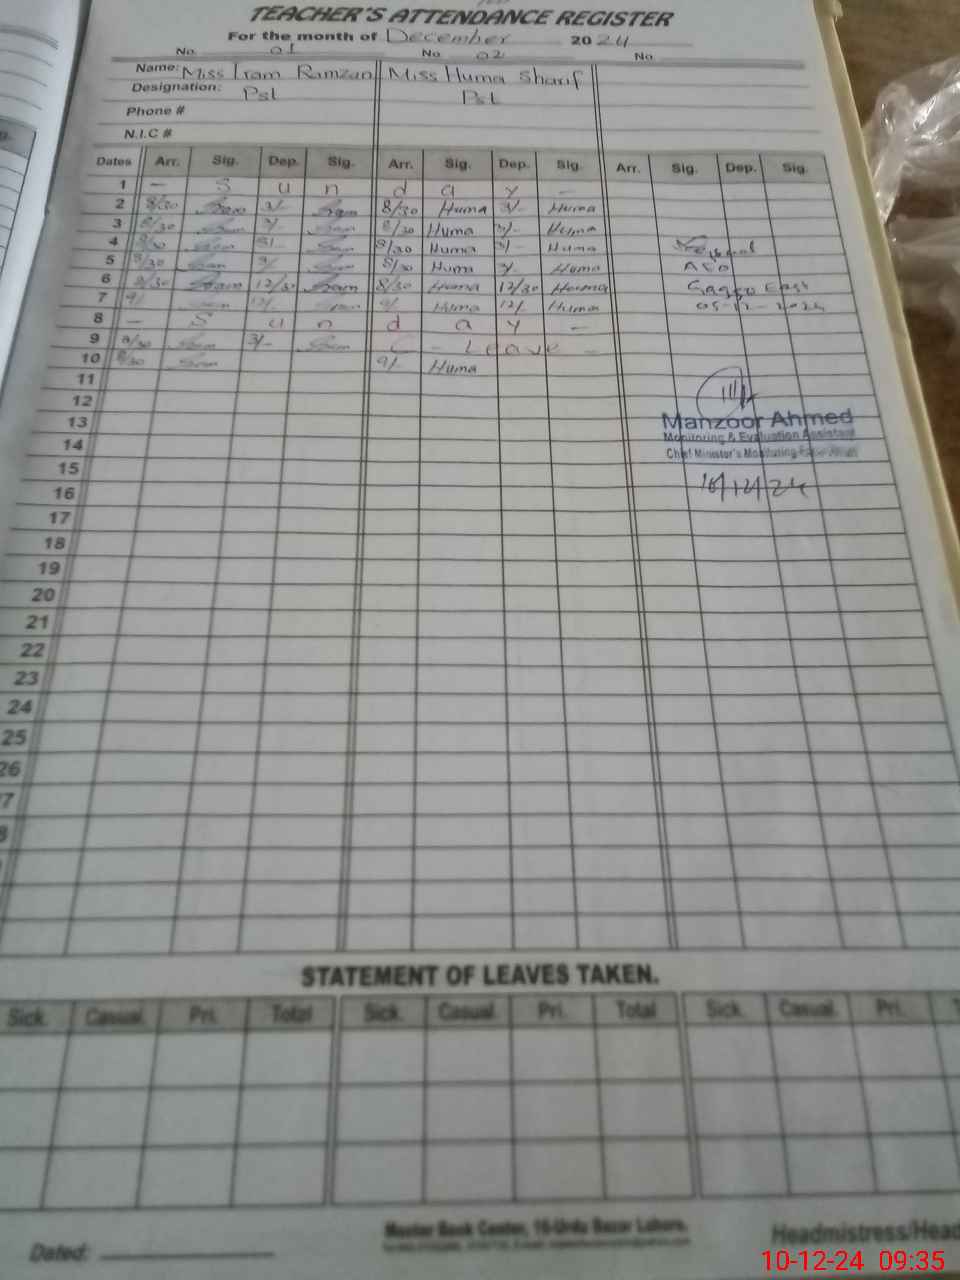 TEACHER'S ATTENDANCE REGISTER
For the month of December 2024
No. 01 No. 02 No.
Name: Miss Iram Ramzan Miss Huma Sharif
Designation: Pst Pst
Phone #
N.I.C #
Dates Arr. Sig. Dep. Sig. Arr. Sig. Dep. Sig. Arr. Sig. Dep. Sig.
1 — S u n d a y —
2 8/30 Iram 3/- Iram 8/30 Huma 3/- Huma
3 8/30 Iram 3/- Iram 8/30 Huma 3/- Huma
4 8/30 Iram 3/- Iram 8/30 Huma 3/- Huma
5 8/30 Iram 3/- Iram 8/30 Huma 3/- Huma AEO
6 8/30 Iram 12/30 Iram 8/30 Huma 12/30 Huma Gaggo East
7 9/- Iram 12/- Iram 9/- Huma 12/- Huma 05-12-2024
8 — S u n d a y —
9 8/30 Iram 3/- Iram C - Leave -
10 8/30 Iram 9/- Huma
11
12
13
Manzoor Ahmed
14
Monitoring & Evaluation Assistant
Chief Minister's Monitoring
15
16
10/12/24
17
18
19
20
21
22
23
24
25
26
7
8
STATEMENT OF LEAVES TAKEN.
Sick. Casual. Pri. Total Sick. Casual. Pri. Total Sick. Casual. Pri.
Master Book Center, 16-Urdu Bazar Lahore.
Dated: Headmistress/Head
10-12-24 09:35